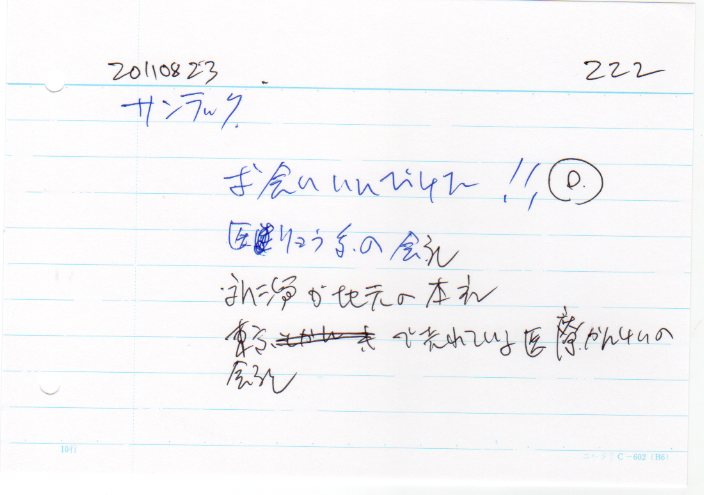 20110823 222
サンラック
お会い !! D.
医りょう系の会社
が地元の本社
東京で売れている医療かんけいの
会社
10行 C-602 (B6)